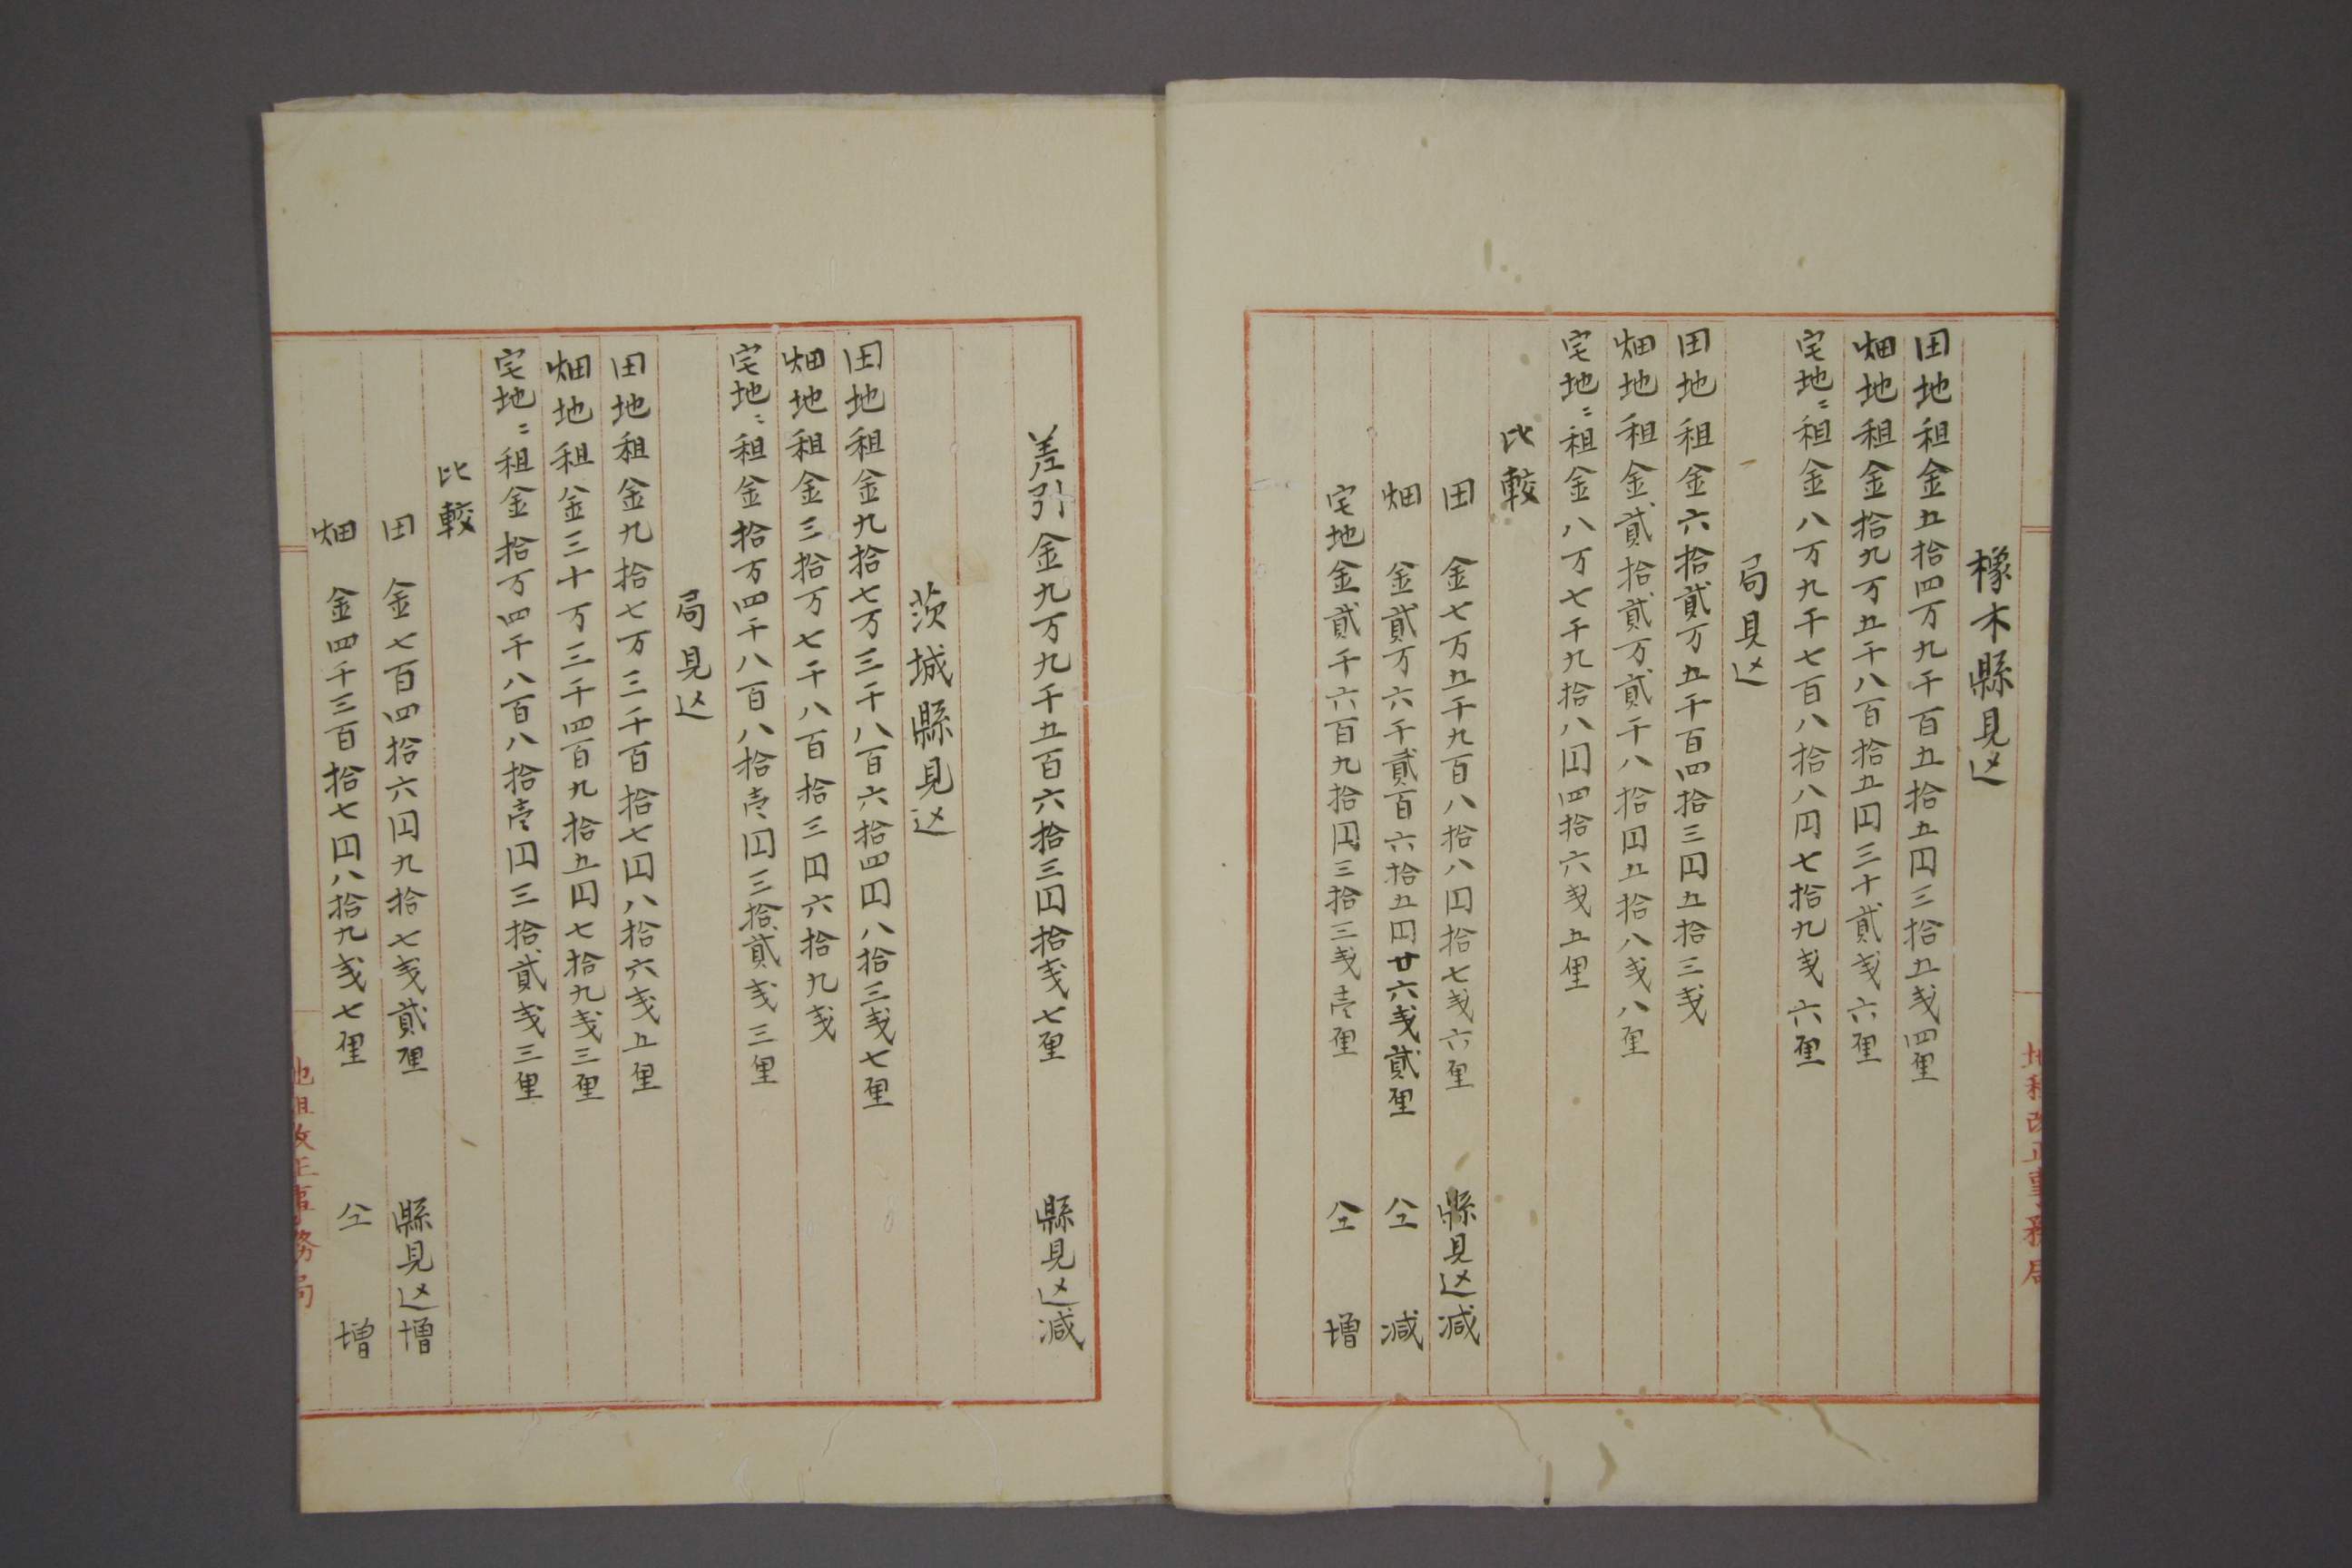 橡木縣見込
田地租金五拾四万九千百五拾五円三拾五戔四厘
畑地租金拾九万五千八百拾五円三十貳戔六厘
宅地〻租金八万九千七百八拾八円七拾九戔六厘
局見込
田地租金六拾貳万五千百四拾三円五拾三戔
畑地租金貳拾貳万貳千八拾円五拾八戔八厘
宅地〻租金八万七千九拾八円四拾六戔五厘
比較
田 金七万五千九百八拾八円拾七戔六厘 縣見込減
畑 金貳万六千貳百六拾五円廿六戔貳厘 仝 減
宅地金貳千六百九拾円三拾三戔壱厘 仝 増
差引金九万九千五百六拾三円拾戔七厘 縣見込減
茨城縣見込
田地租金九拾七万三千八百六拾四円八拾三戔七厘
畑地租金三拾万七千八百拾三円六拾九戔
宅地〻租金拾万四千八百八拾壱円三拾貳戔三厘
局見込
田地租金九拾七万三千百拾七円八拾六戔五厘
畑地租金三十万三千四百九拾五円七拾九戔三厘
宅地〻租金拾万四千八百八拾壱円三拾貳戔三厘
比較
田 金七百四拾六円九拾七戔貳厘 縣見込増
畑 金四千三百拾七円八拾九戔七厘 仝 増
地租改正事務局